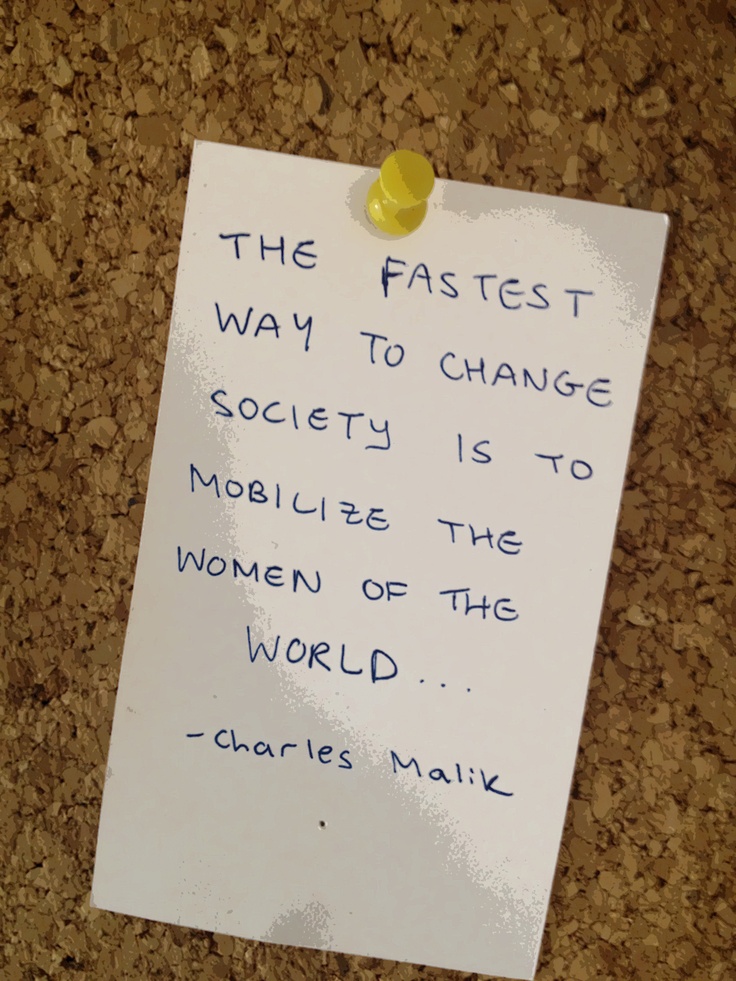 THE FASTEST
WAY TO CHANGE
SOCIETY IS TO
MOBILIZE THE
WOMEN OF THE
WORLD...
-Charles Malik